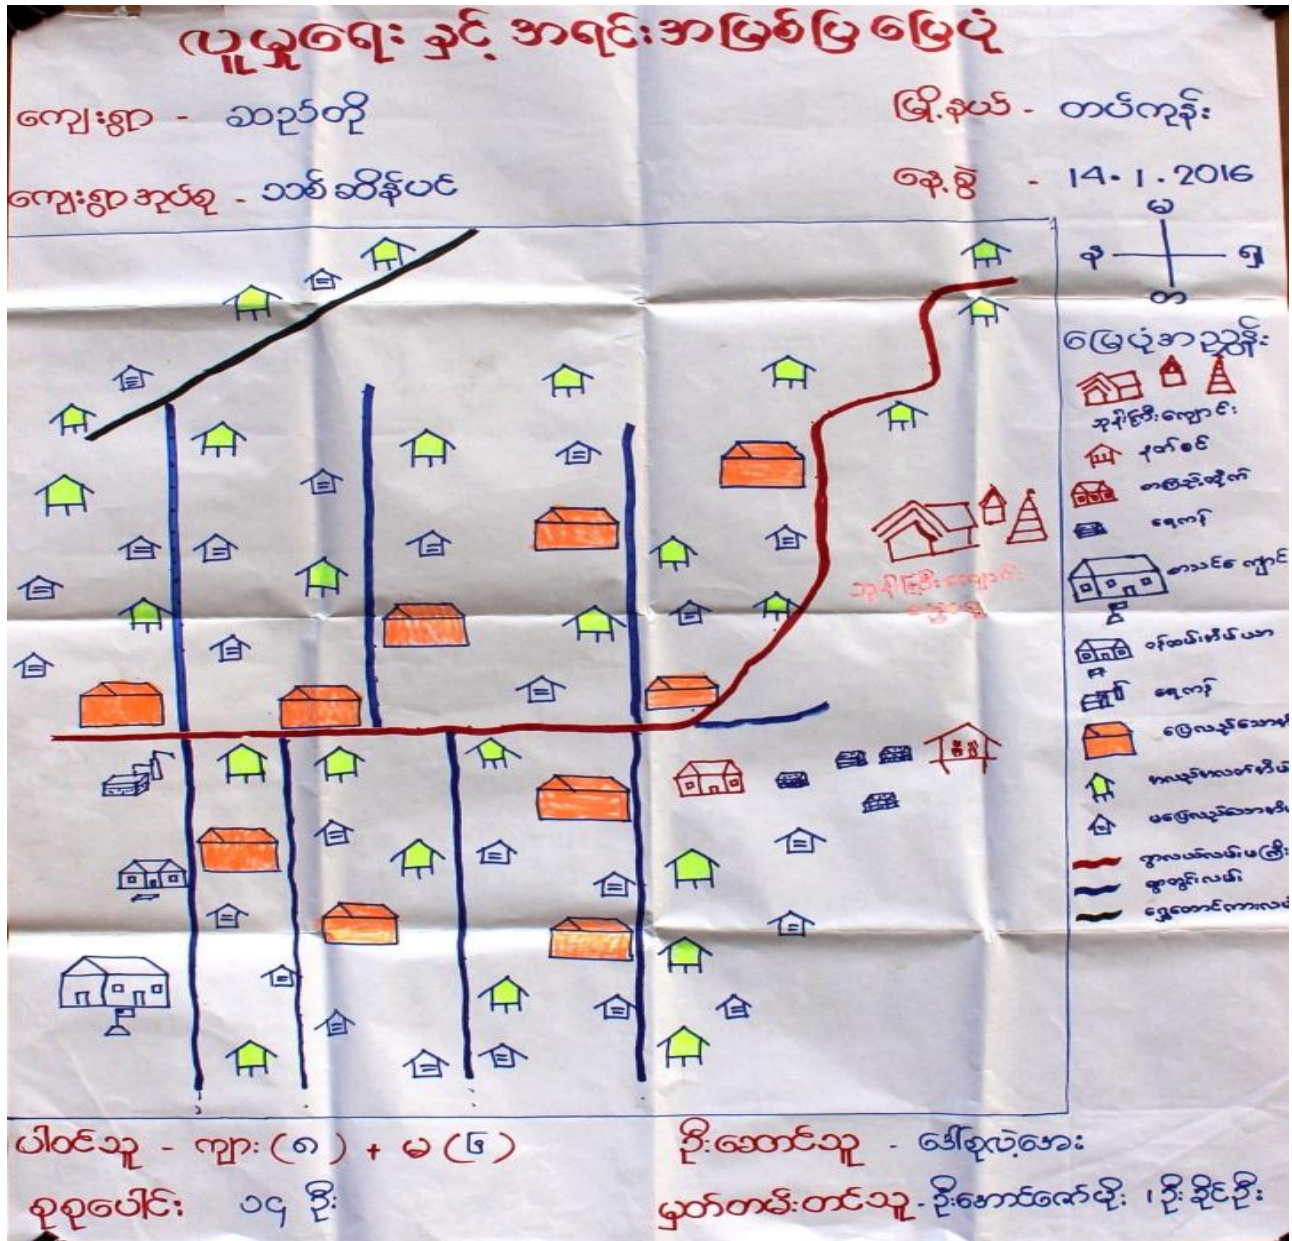 လူမှုရေး နှင့် အရင်းအမြစ်ပြ မြေပုံ
ကျေးရွာ - ဆည်တို
မြို့နယ် - တပ်ကုန်း
ကျေးရွာအုပ်စု - သစ်ဆိမ့်ပင်
နေ့စွဲ - 14.1.2016
မ
န ရှ
တ
မြေပုံအညွှန်း
ဘုန်းကြီးကျောင်း
နတ်စင်
စာကြည့်တိုက်
ရေကန်
စာသင်ကျောင်း
ဝန်ထမ်းအိမ်ယာ
ရေကန်
ပြေလည်သော
အလယ်အလတ်အိမ်
မပြေလည်သော
ရွာလယ်လမ်းမကြီး
ရွာတွင်းလမ်း
ဘုန်းကြီးကျောင်း
ပါဝင်သူ - ကျား (၈) + မ (၆)
စုစုပေါင်း ၁၄ ဦး
ဦးဆောင်သူ - ဒေါ်စုလဲ့အေး
မှတ်တမ်းတင်သူ - ဦးအောင်ဇော်မိုး ၊ ဦးခိုင်ဦး